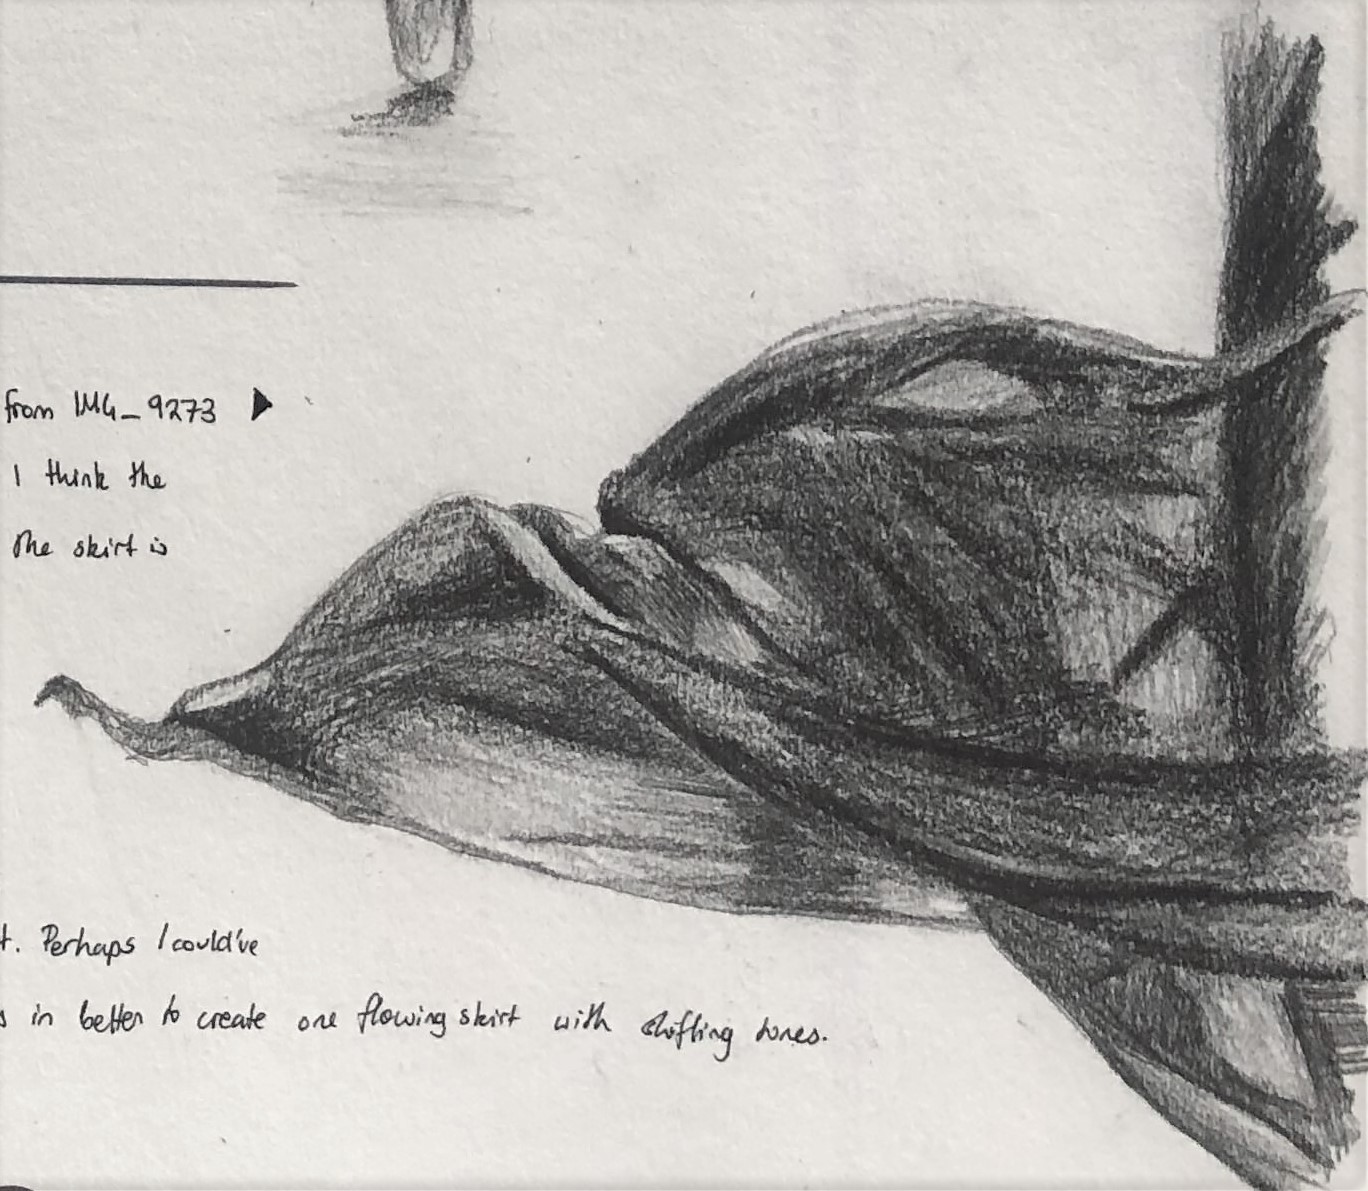 from IMG_9273
I think the
The skirt is
t. Perhaps I could've
s in better to create one flowing skirt with shifting tones.